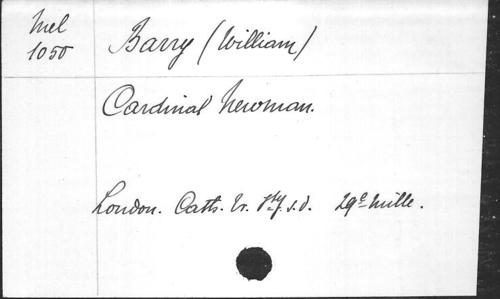 Mel
1050
Barry (William)
Cardinal Newman.
London. Cath. Tr. Sty. s.d. 29e mille.